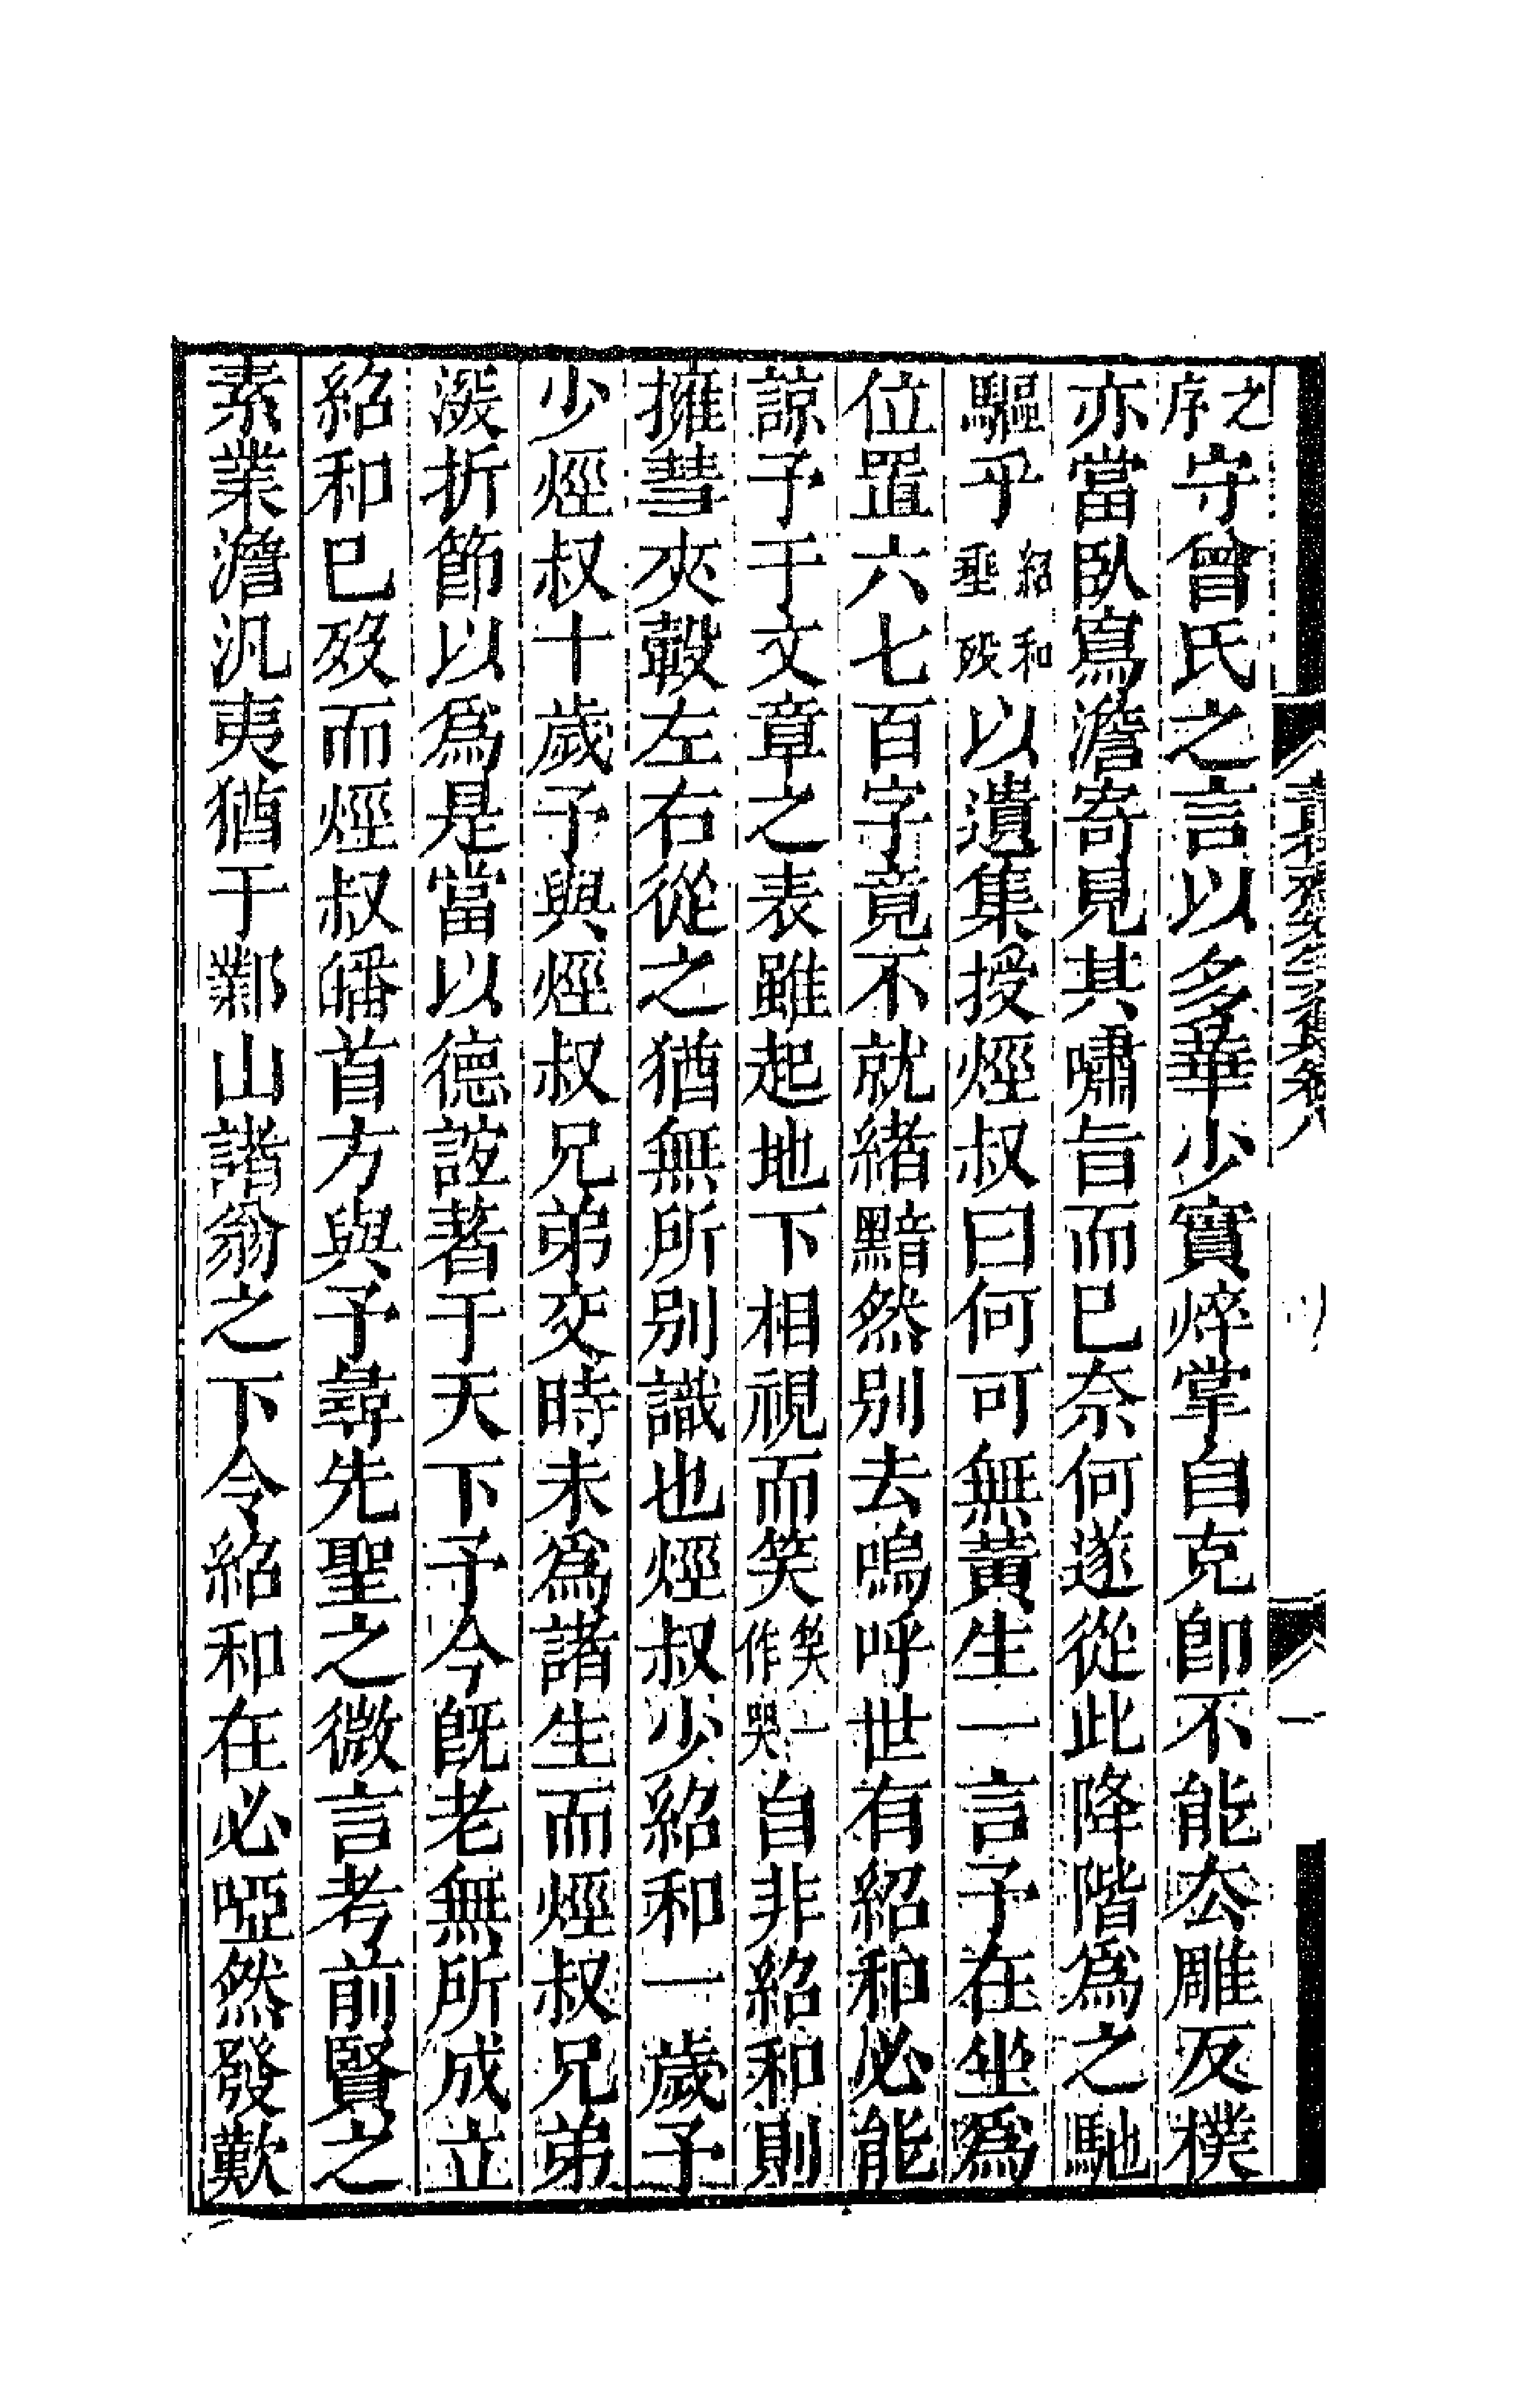 之序守曾氏之言以多華少實焠掌自克卽不能厺雕反樸
亦當臥寫澹寄見其嘯旨而已奈何遂從此降階爲之馳
驅乎紹和垂歿以遺集授烴叔曰何可無黃生一言予在坐爲
位置六七百字竟不就緒黯然別去嗚呼世有紹和必能
諒予于文章之表雖起地下相視而笑笑一作哭自非紹和則
擁彗夾轂左右從之猶無所別識也烴叔少紹和一歲予
少烴叔十歲予與烴叔兄弟交時未爲諸生而烴叔兄弟
折節以爲是當以德誼著于天下予今旣老無所成立
紹和已歿而烴叔皤首方與予尋先聖之微言考前賢之
素業澹汎夷猶于鄴山諸翁之下令紹和在必啞然發歎